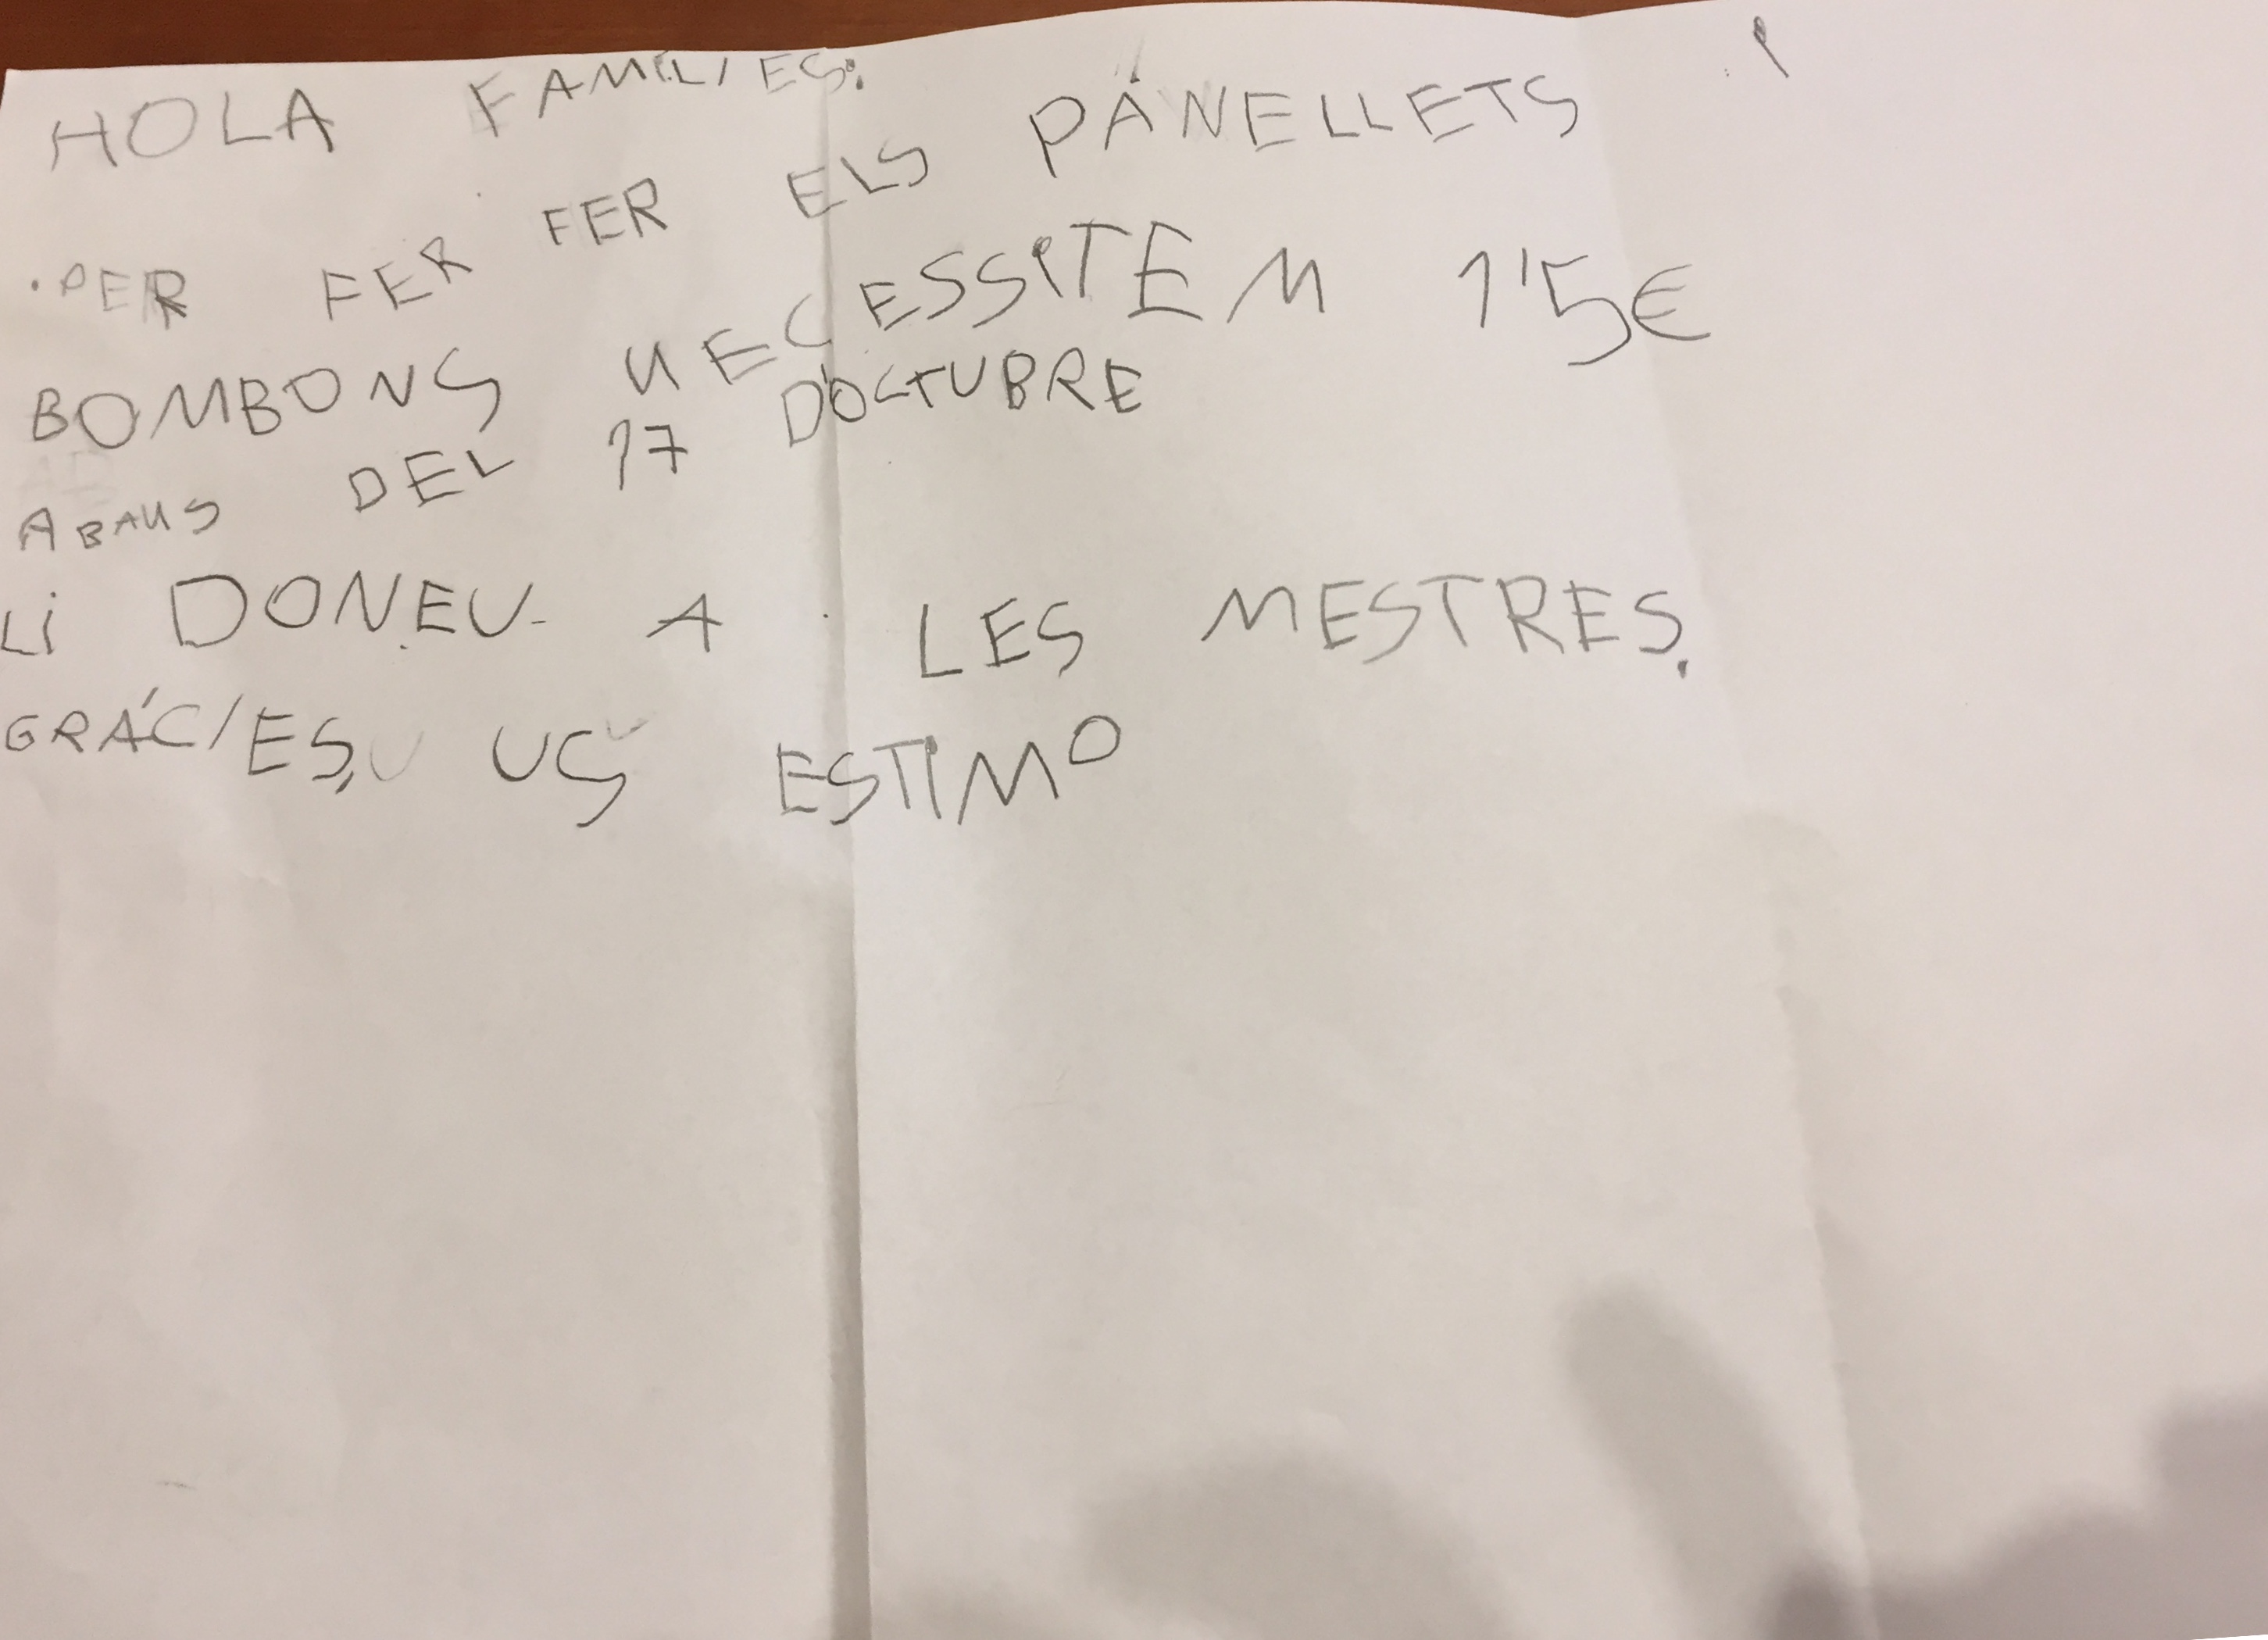 HOLA FAMÍLIES:
PER FER FER ELS PÁNELLETS I
BOMBONS NECESSITEM 1'5€
ABANS DEL 17 D'OCTUBRE
Li DONEU A LES MESTRES.
GRÁCIES, US ESTIMO